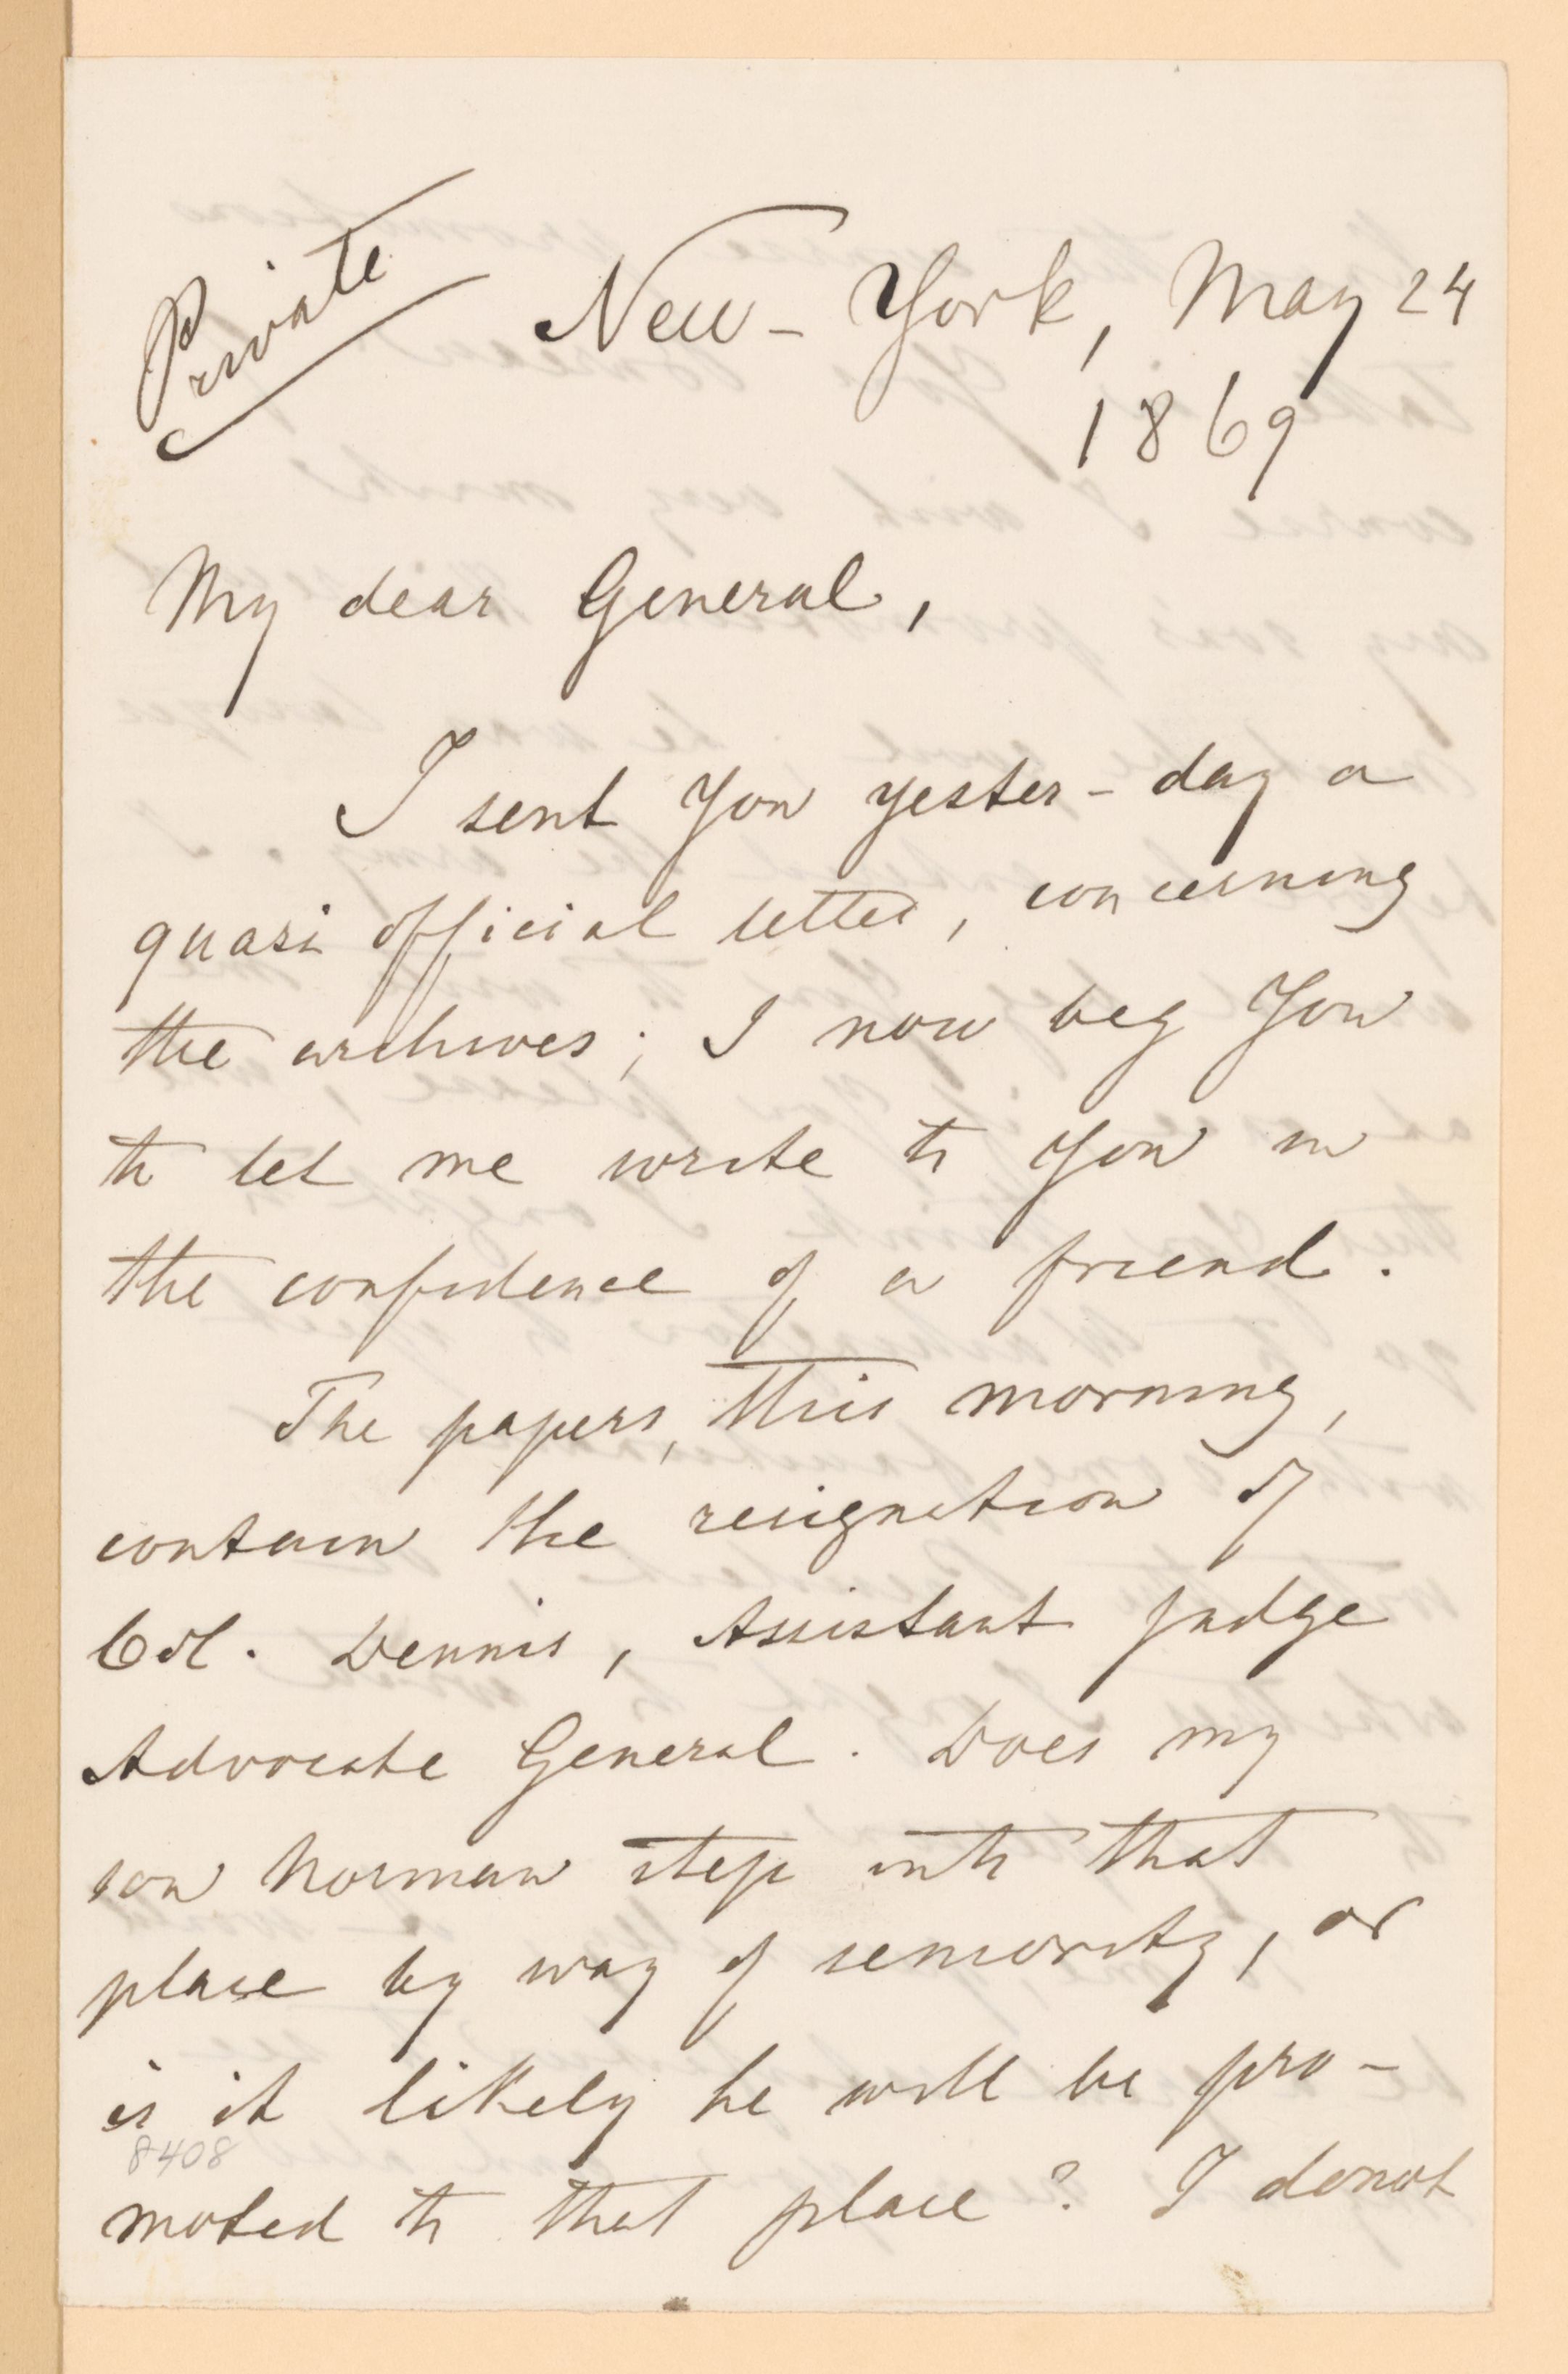 Private
New-York, May 24
1869
My dear General,
I sent You yester-day a
quasi official letter, concerning
the archives; I now beg You
to let me write to You in
the confidence of a friend.
The papers, this morning,
contain the resignation of
Col. Dennis, Assistant Judge
Advocate General. Does my
son Norman step into that
place by way of seniority, or
is it likely he will be pro-
8408
moted to that place? I donot